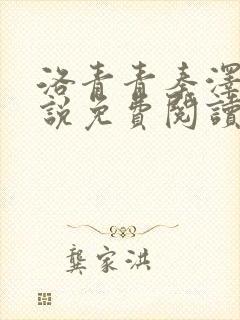 洛青青秦澤
說免費閱讀
龔家洪